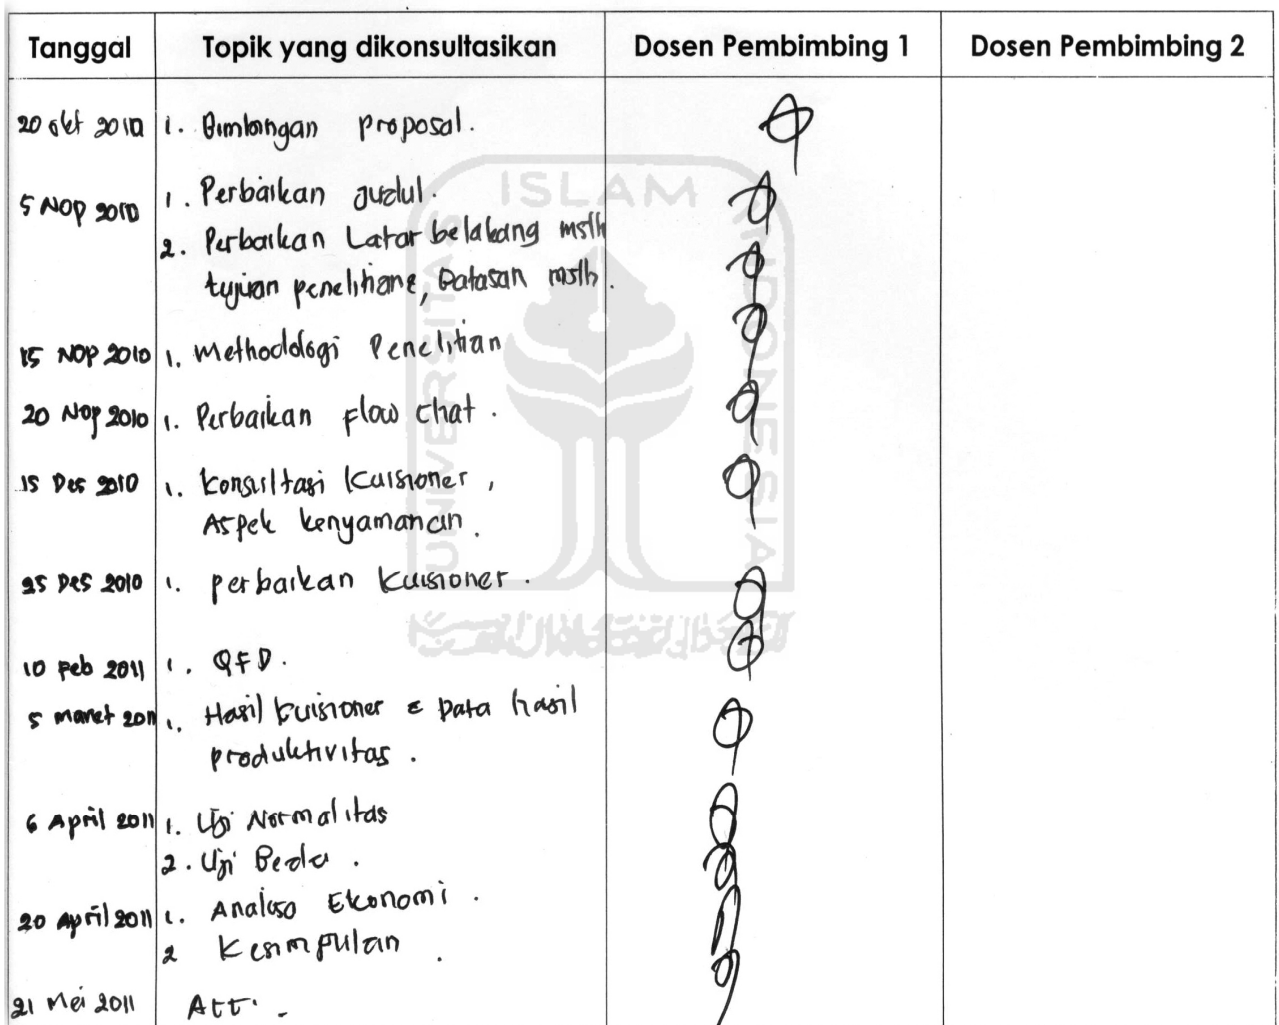 Tanggal Topik yang dikonsultasikan Dosen Pembimbing 1 Dosen Pembimbing 2
20 okt 2010 1. Bimbingan proposal.
5 Nop 2010 1. Perbaikan judul.
2. Perbaikan Latar belakang mslh
tujuan penelitiane, Batasan mslh.
15 NOP 2010 1. Methodologi Penelitian
20 Nop 2010 1. Perbaikan Flow chat.
15 Des 2010 1. Konsultasi Kuisioner,
Aspek kenyamanan.
25 Des 2010 1. perbaikan Kuisioner.
10 Feb 2011 1. QFD.
5 maret 2011 1. Hasil kuisioner & Data hasil
produktivitas.
6 April 2011 1. Uji Normalitas
2. Uji Beda.
20 April 2011 1. Analisa Ekonomi.
2 Kesimpulan.
21 Mei 2011
ISLAM
UNIVERSITAS
INDONESIA